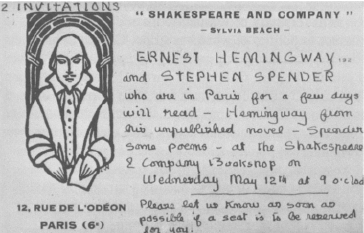 2 INVITATIONS
" SHAKESPEARE AND COMPANY "
– SYLVIA BEACH –
ERNEST HEMINGWAY
and STEPHEN SPENDER
who are in Paris for a few days
will read – Hemingway from
his unpublished novel – Spender
some poems – at the Shakespeare
& Company Bookshop on
Wednesday May 12th at 9 o'clock
12, RUE DE L'ODÉON
PARIS (6e)
Please let us know as soon as
possible if a seat is to be reserved
for you.